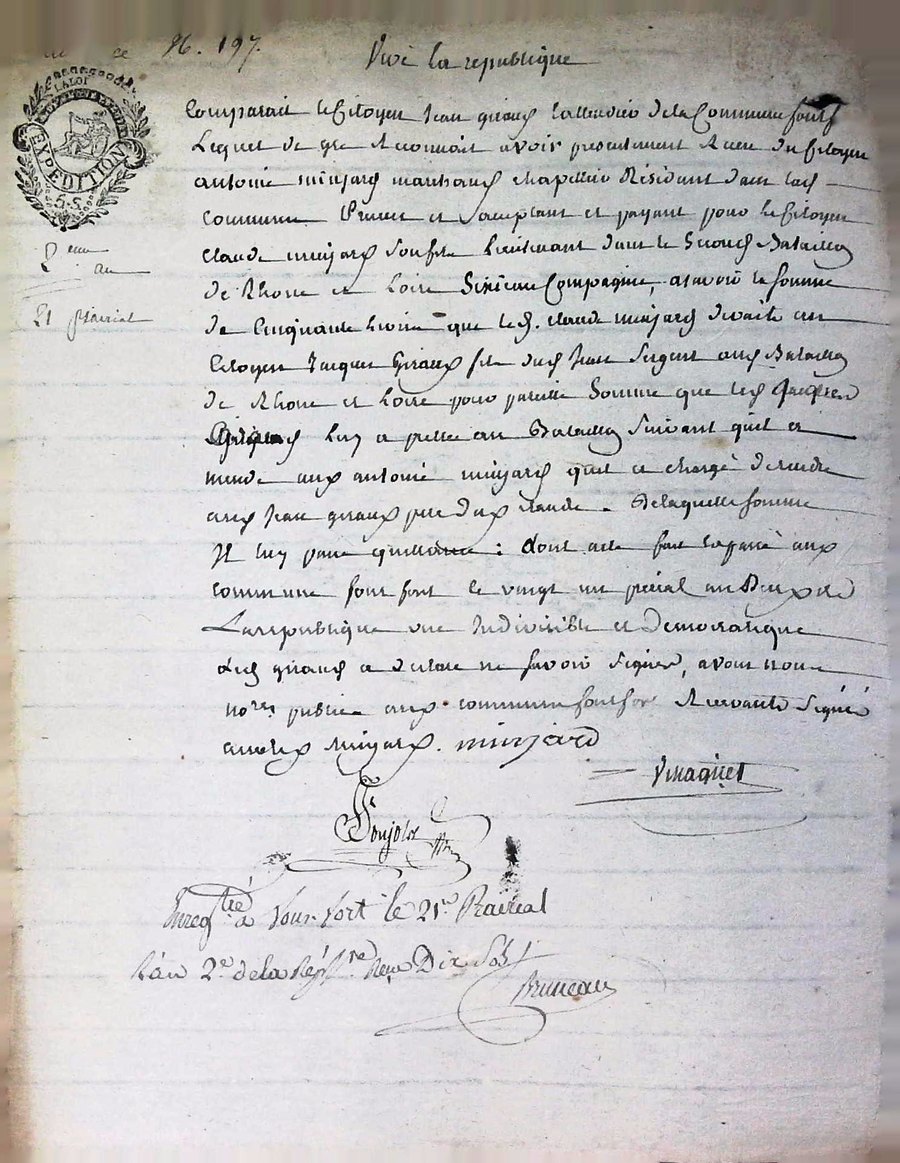 96. 197.
Vive la republique
LA LOI
EXPEDITION
5. S.
2 eme
an
21 prairial
Comparait le Citoyen Jean giraud de la Commune fonfort
Lequel de gré Reconnait avoir presentement Receu du Citoyen
antoine minjard marchand chapellier Résidant dans lad
commune present et acceptant et payant pour le Citoyen
claude minjard son fils Lieutenant dans le Second Bataillon
de Rhone et Loire Sixieme Compagnie, a savoir la somme
de Cinquante Livres que led. claude minjard devait au
Citoyen Jacques Giraud fils dud Jean Sergent aud Bataillon
de Rhone et Loire pour pareille Somme que led Jacques
Luy a au Bataillon Suivant qu'il a
mandé aud antoine minjard qu'il a chargé de rendre
aud Jean giraud pere claude. De laquelle somme
Il luy passe quittance : dont acte fait et passé aud
commune fonfort le vingt un an Deux de
La republique une Indivisible et Democratique
Led giraud a declaré ne savoir Signer, avons nous
no.res public aud commune fonfort Recevant Signé
avec led minjard. minjard
Pujolas
Enreg.tré a Fonfort le 21e Prairial
l'an 2e de la Rép. Reçu Dix Sols
Bruneau